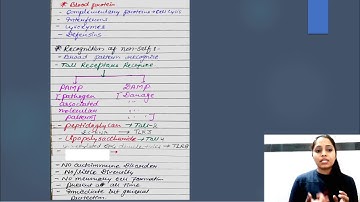 * Blood protein
- Complementary proteins → Cell Lysis
- Interferons
- Lysozymes
- Defensins
* Recognition of non-self :-
- Broad pattern recognise
- Toll Receptors Receptors
PAMP DAMP
[Pathogen [Damage
associated
molecular
pattern]
- Peptidoglycan → Toll-2
→ TLR3
- Lipopolysaccharide → Toll-4
→ TLR8
- No autoimmune disorder
- No/little diversity
- No memory cell formation
- Present all time
- Immediate but general
protection